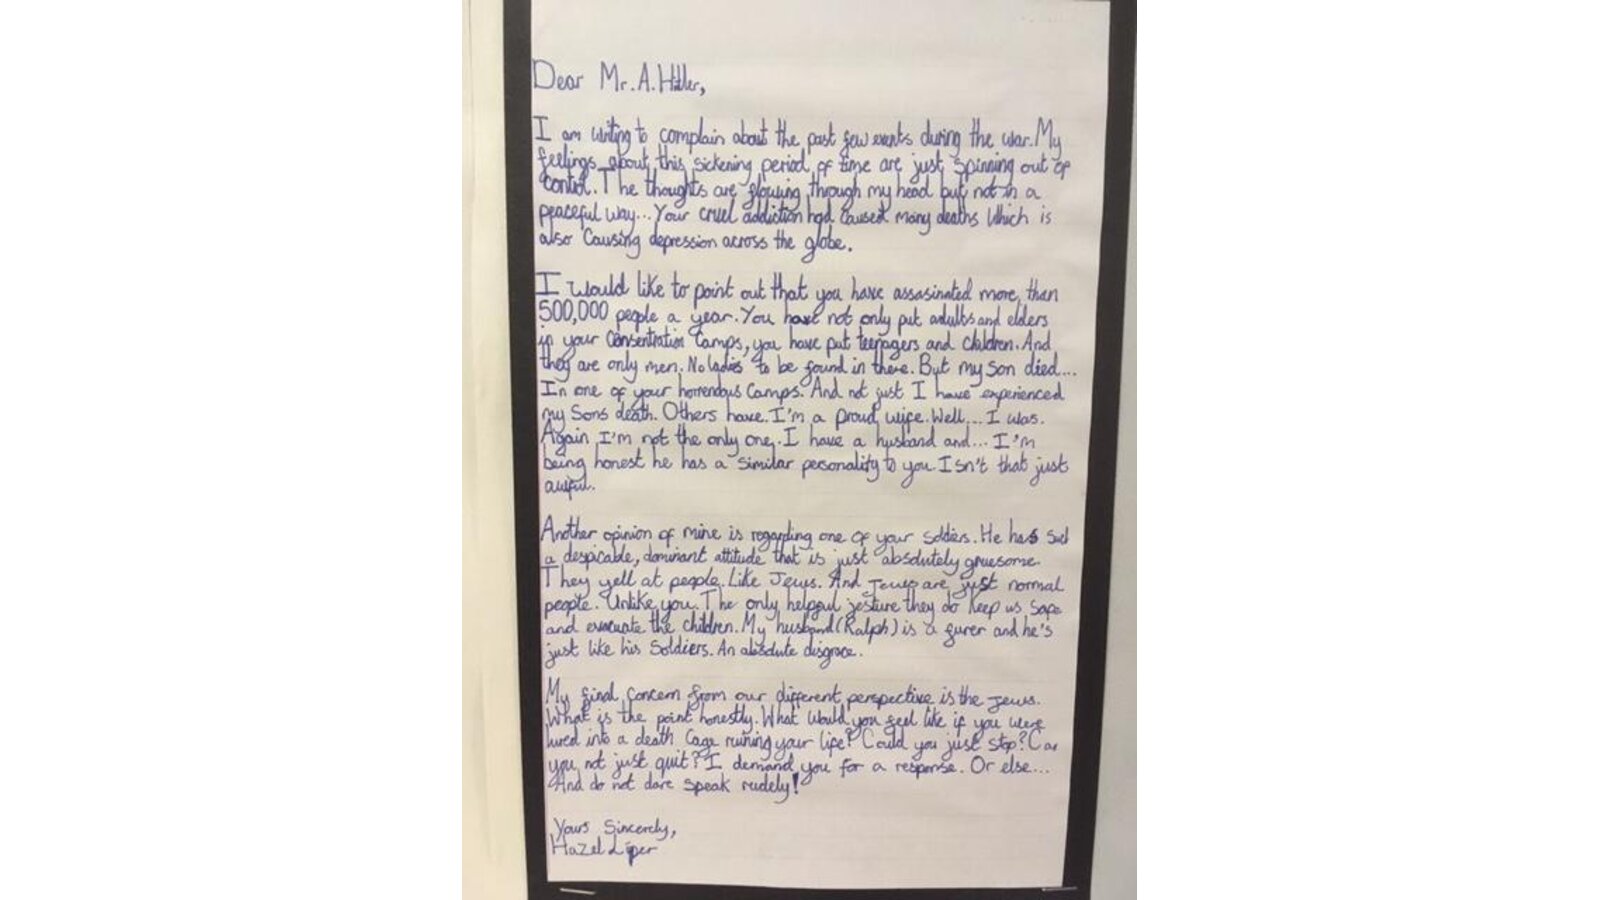 Dear Mr. A. Hitler,
I am writing to complain about the past few events during the war. My
feelings about this sickening period of time are just spinning out of
control. The thoughts are flowing through my head but not in a
peaceful way... Your cruel addiction had caused many deaths which is
also causing depression across the globe.
I would like to point out that you have assasinated more than
500,000 people a year. You have not only put adults and elders
in your consentration camps, you have put teenagers and children. And
they are only men. No ladies to be found in there. But my son died...
In one of your horrendous camps. And not just I have experienced
my sons death. Others have. I'm a proud wife. Well... I was.
Again I'm not the only one. I have a husband and... I'm
being honest he has a similar personality to you. Isn't that just
awful.
Another opinion of mine is regarding one of your soldiers. He has such
a despicable, dominant attitude that is just absolutely gruesome.
They yell at people. Like Jews. And Jews are just normal
people. Unlike you. The only helpful jesture they do keep us safe
and evacuate the children. My husband (Ralph) is a furer and he's
just like his soldiers. An absolute disgrace.
My final concern from our different perspective is the Jews.
What is the point honestly. What would you feel like if you were
lured into a death cage ruining your life? Could you just stop? Can
you not just quit? I demand you for a response. Or else...
And do not dare speak rudely!
Yours Sincerely,
Hazel